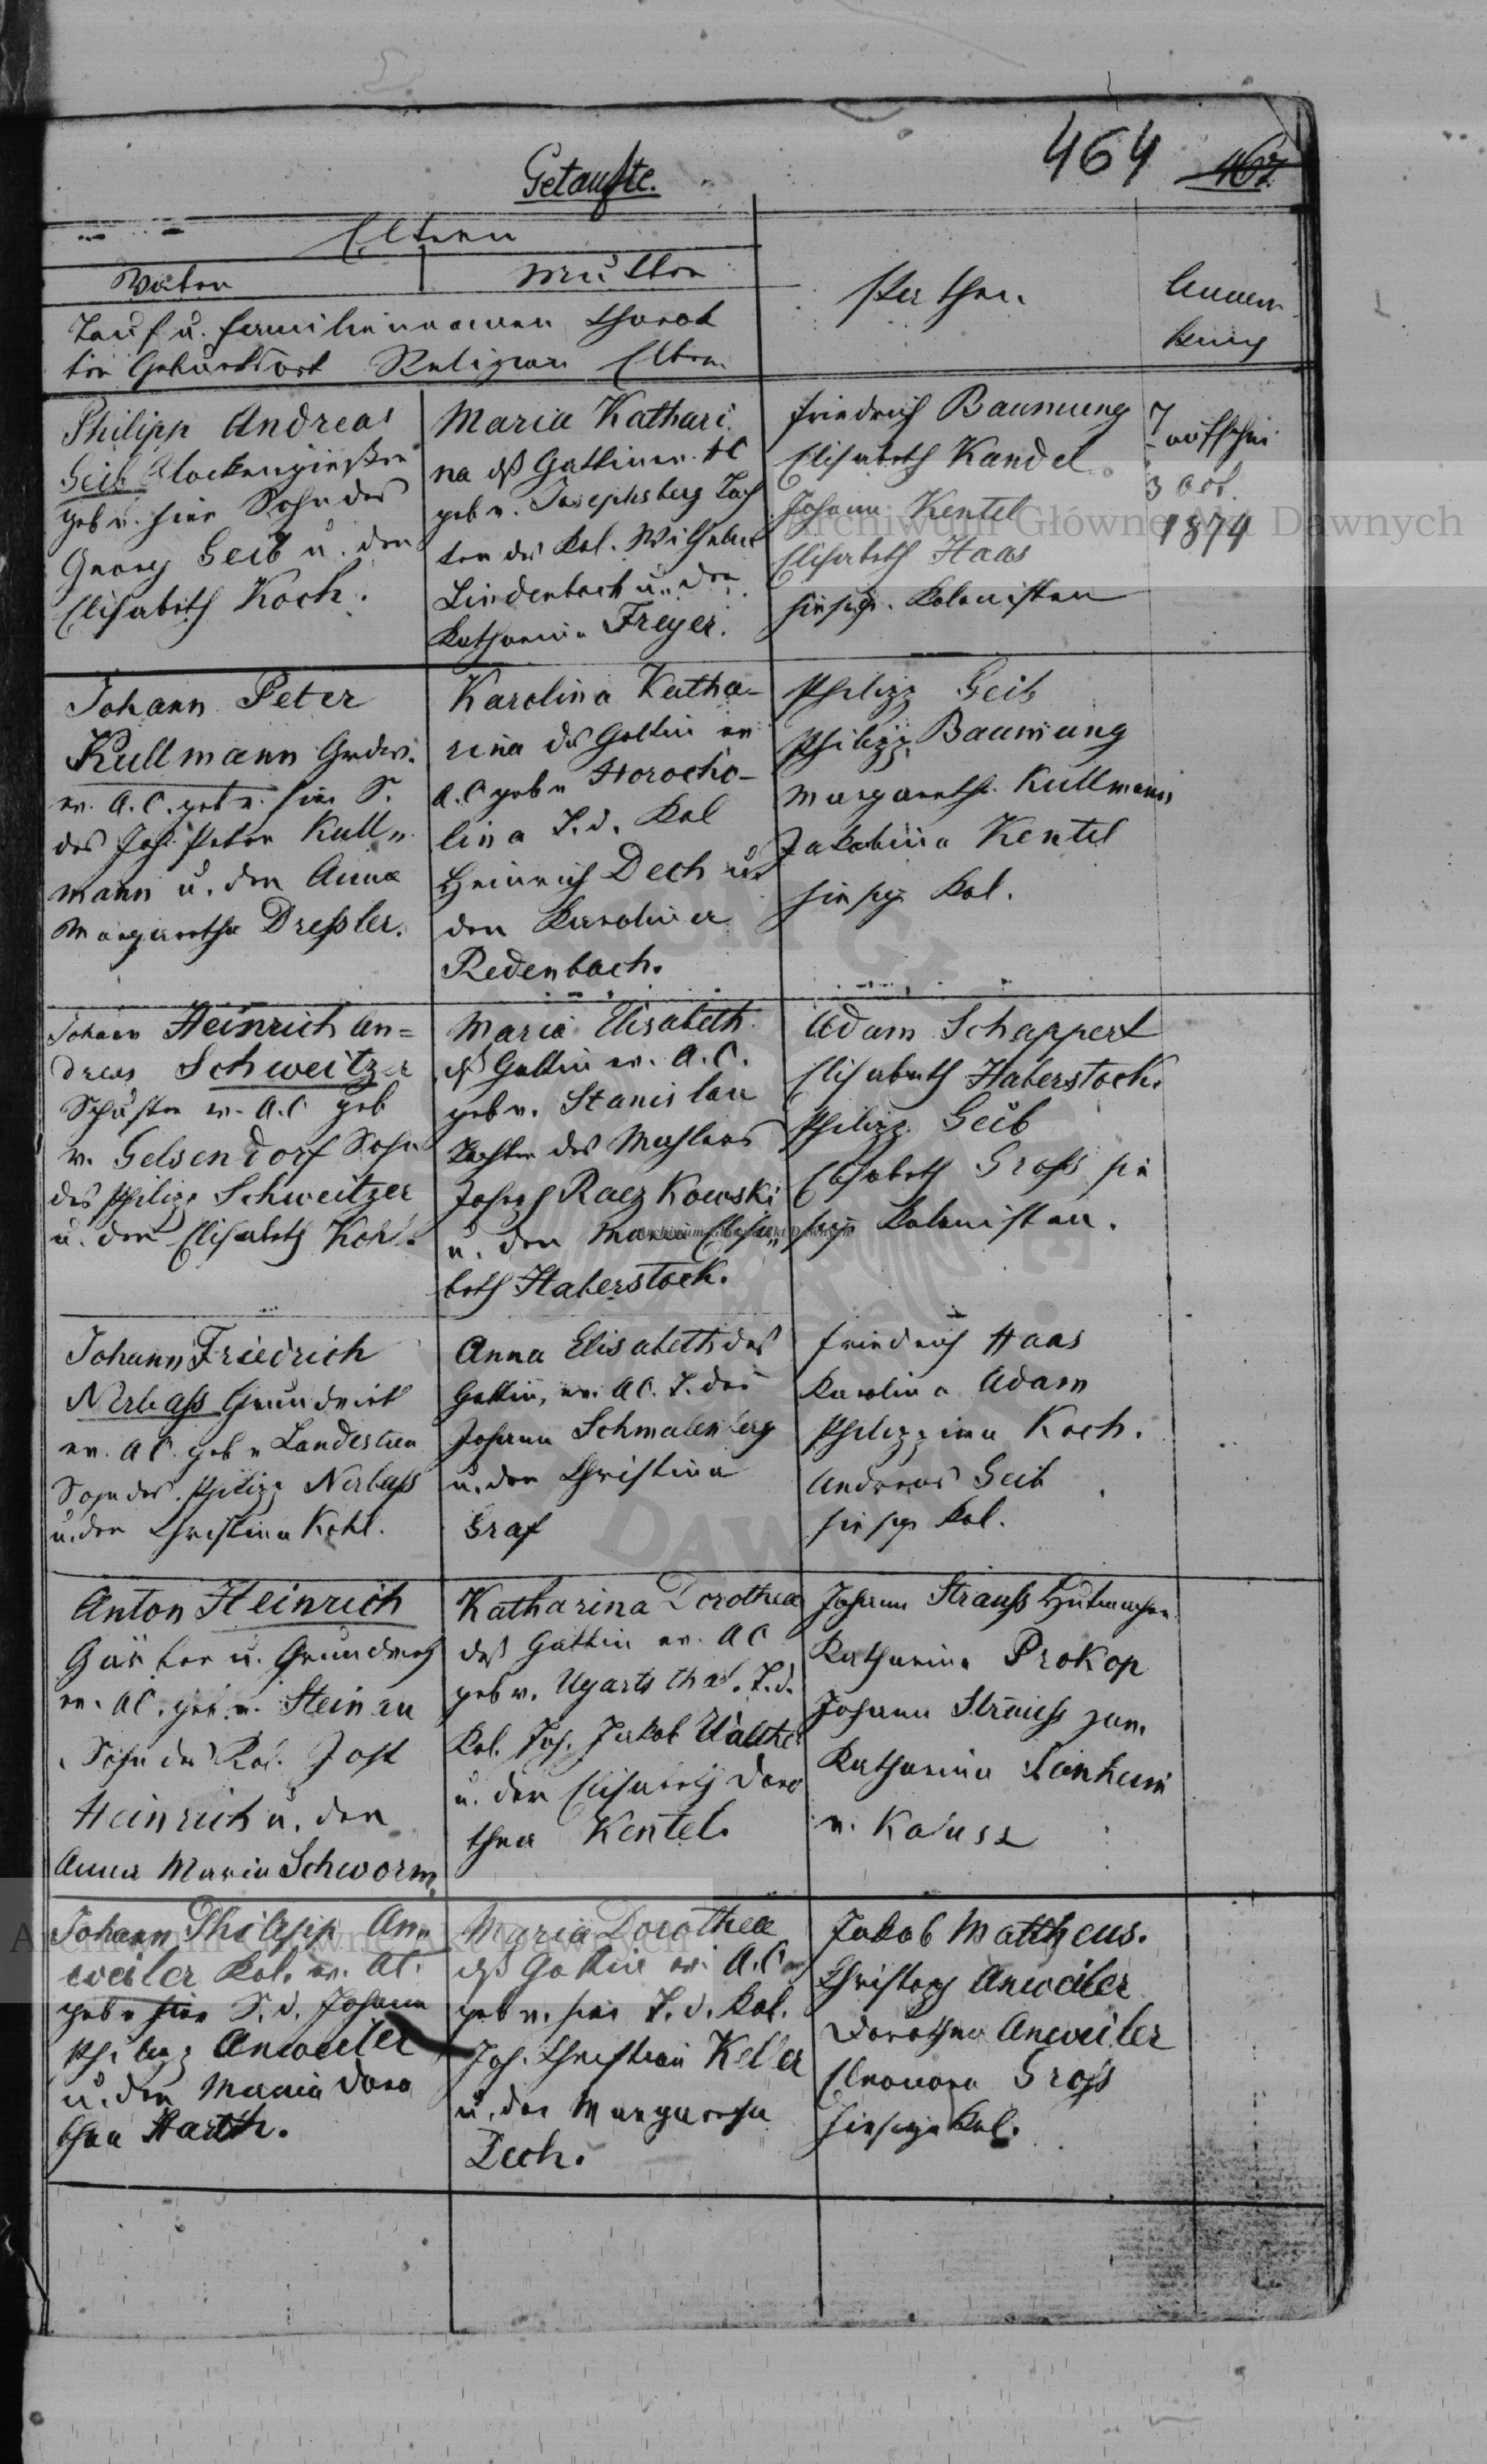 464 467
Getaufte.
Eltern
Vater
Mutter
Tauf u. Familiennamen Charak
ter Geburtsort Religion Eltern
Pathen.
Anmer
kung
Philipp Andreas
Geib Glockengießer
geb v. hier Sohn des
Georg Geib u. der
Elisabeth Koch.
Maria Kathari
na dß Gattin ev. AC
geb v. Josephsberg Toch
ter des Kol. Wilhelm
Lindenbach u. der
Katharina Freyer.
Friedrich Baumung
Elisabeth Kandel
Johann Kentel
Elisabeth Haas
hiesige Kolonisten
Taufschein
3 Oct.
1874
Johann Peter
Kullmann Grdw.
ev. A.C. geb v. hier S.
des Joh. Peter Kull
mann u. der Anna
Margaretha Dreßler.
Karolina Katha-
rina des Gattin ev
A.C geb v Horocho-
lina T. d. Kol
Heinrich Dech u
der Karolina
Redenbach.
Philipp Geib
Philipp Baumung
Margaretha Kullmann
Jakobina Kentel
hiesige Kol.
Johann Heinrich An=
dreas Schweitzer
Schuster ev. A.C geb
v. Gelsendorf Sohn
des Philipp Schweitzer
u. der Elisabeth Kohl.
Maria Elisabeth
dß Gattin ev. A.C.
geb v. Stanislau
Tochter des Mahlers
Joseph Raczkowski
u. der Maria Elisa„
beth Haberstock.
Adam Schappert
Elisabeth Haberstock.
Philipp Geib
Elisabeth Groß hie
sige Kolonisten.
Johann Friedrich
Nerbaß Grundwirt
ev. AC geb v Landestreu
Sohn des Philipp Nerbaß
u. der Christina Kohl.
Anna Elisabeth des
Gattin, ev. AC. T. des
Johann Schmalenberg
u. der Christina
Graf
Friedrich Haas
Karolina Adam
Philippina Koch.
Andreas Geib
hiesige Kol.
Anton Heinrich
Gärber u. Grundwirth
ev. AC. geb. v. Steinau
Sohn des Kol. Jost
Heinrich u. der
Anna Maria Schworm.
Katharina Dorothea
deß Gattin ev. AC
geb v. Ugartsthal. T. d.
Kol. Joh. Jakob Walther
u. der Elisabeth Doro
thea Kentel.
Johann Strauß Hutmacher
Katharina Prokop
Johann Strauß jun.
Katharina Leinheim
v. Kalusz
Johann Philipp An„
weiler Kol. ev. AC.
geb v hier S. d. Johann
Philipp Anweiler
u. der Maria Doro
thea Harth.
Maria Dorothea
dß Gattin ev. A.C.
geb v. hier T. d. Kol.
Joh. Christian Keller
u. der Margaretha
Dech.
Jakob Mattheus.
Christoph Anweiler
Dorothea Anweiler
Eleonora Groß
hiesige Kol.
Archiwum Główne Akt Dawnych
Archiwum Główne Akt Dawnych
Archiwum Główne Akt Dawnych